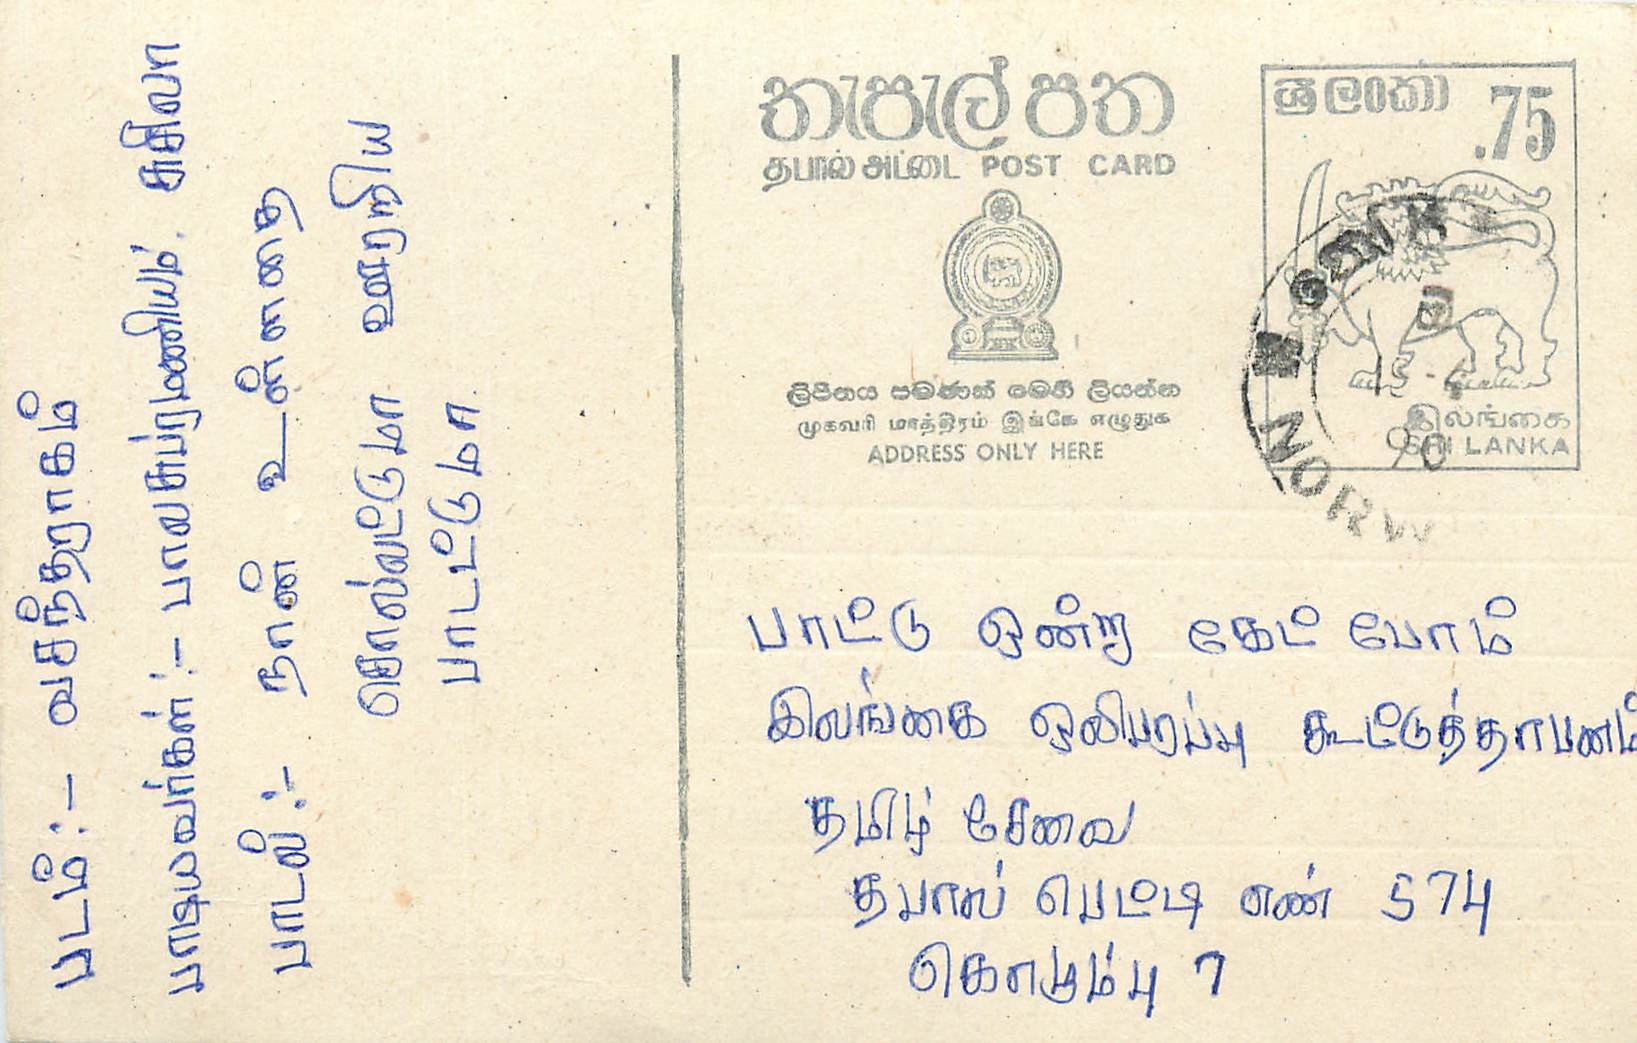 படம்:- வசந்தராகம்
பாடியவர்கள்:- பாலசுப்ரமணியம், சுசிலா
பாடல்:- நான் உன்னதை
சொல்லட்டுமா ஊரறிய
பாடட்டுமா
තැපැල් පත
தபால் அட்டை POST CARD
ලිපිනය පමණක් මෙහි ලියන්න
முகவரி மாத்திரம் இங்கே எழுதுக
ADDRESS ONLY HERE
ශ්‍රී ලංකා .75
இலங்கை
SRI LANKA
NORW
90
பாட்டு ஒன்று கேட் போம்
இலங்கை ஒலிபரப்பு கூட்டுத்தாபனம்
தமிழ் சேவை
தபால் பெட்டி எண் 574
கொழும்பு 7